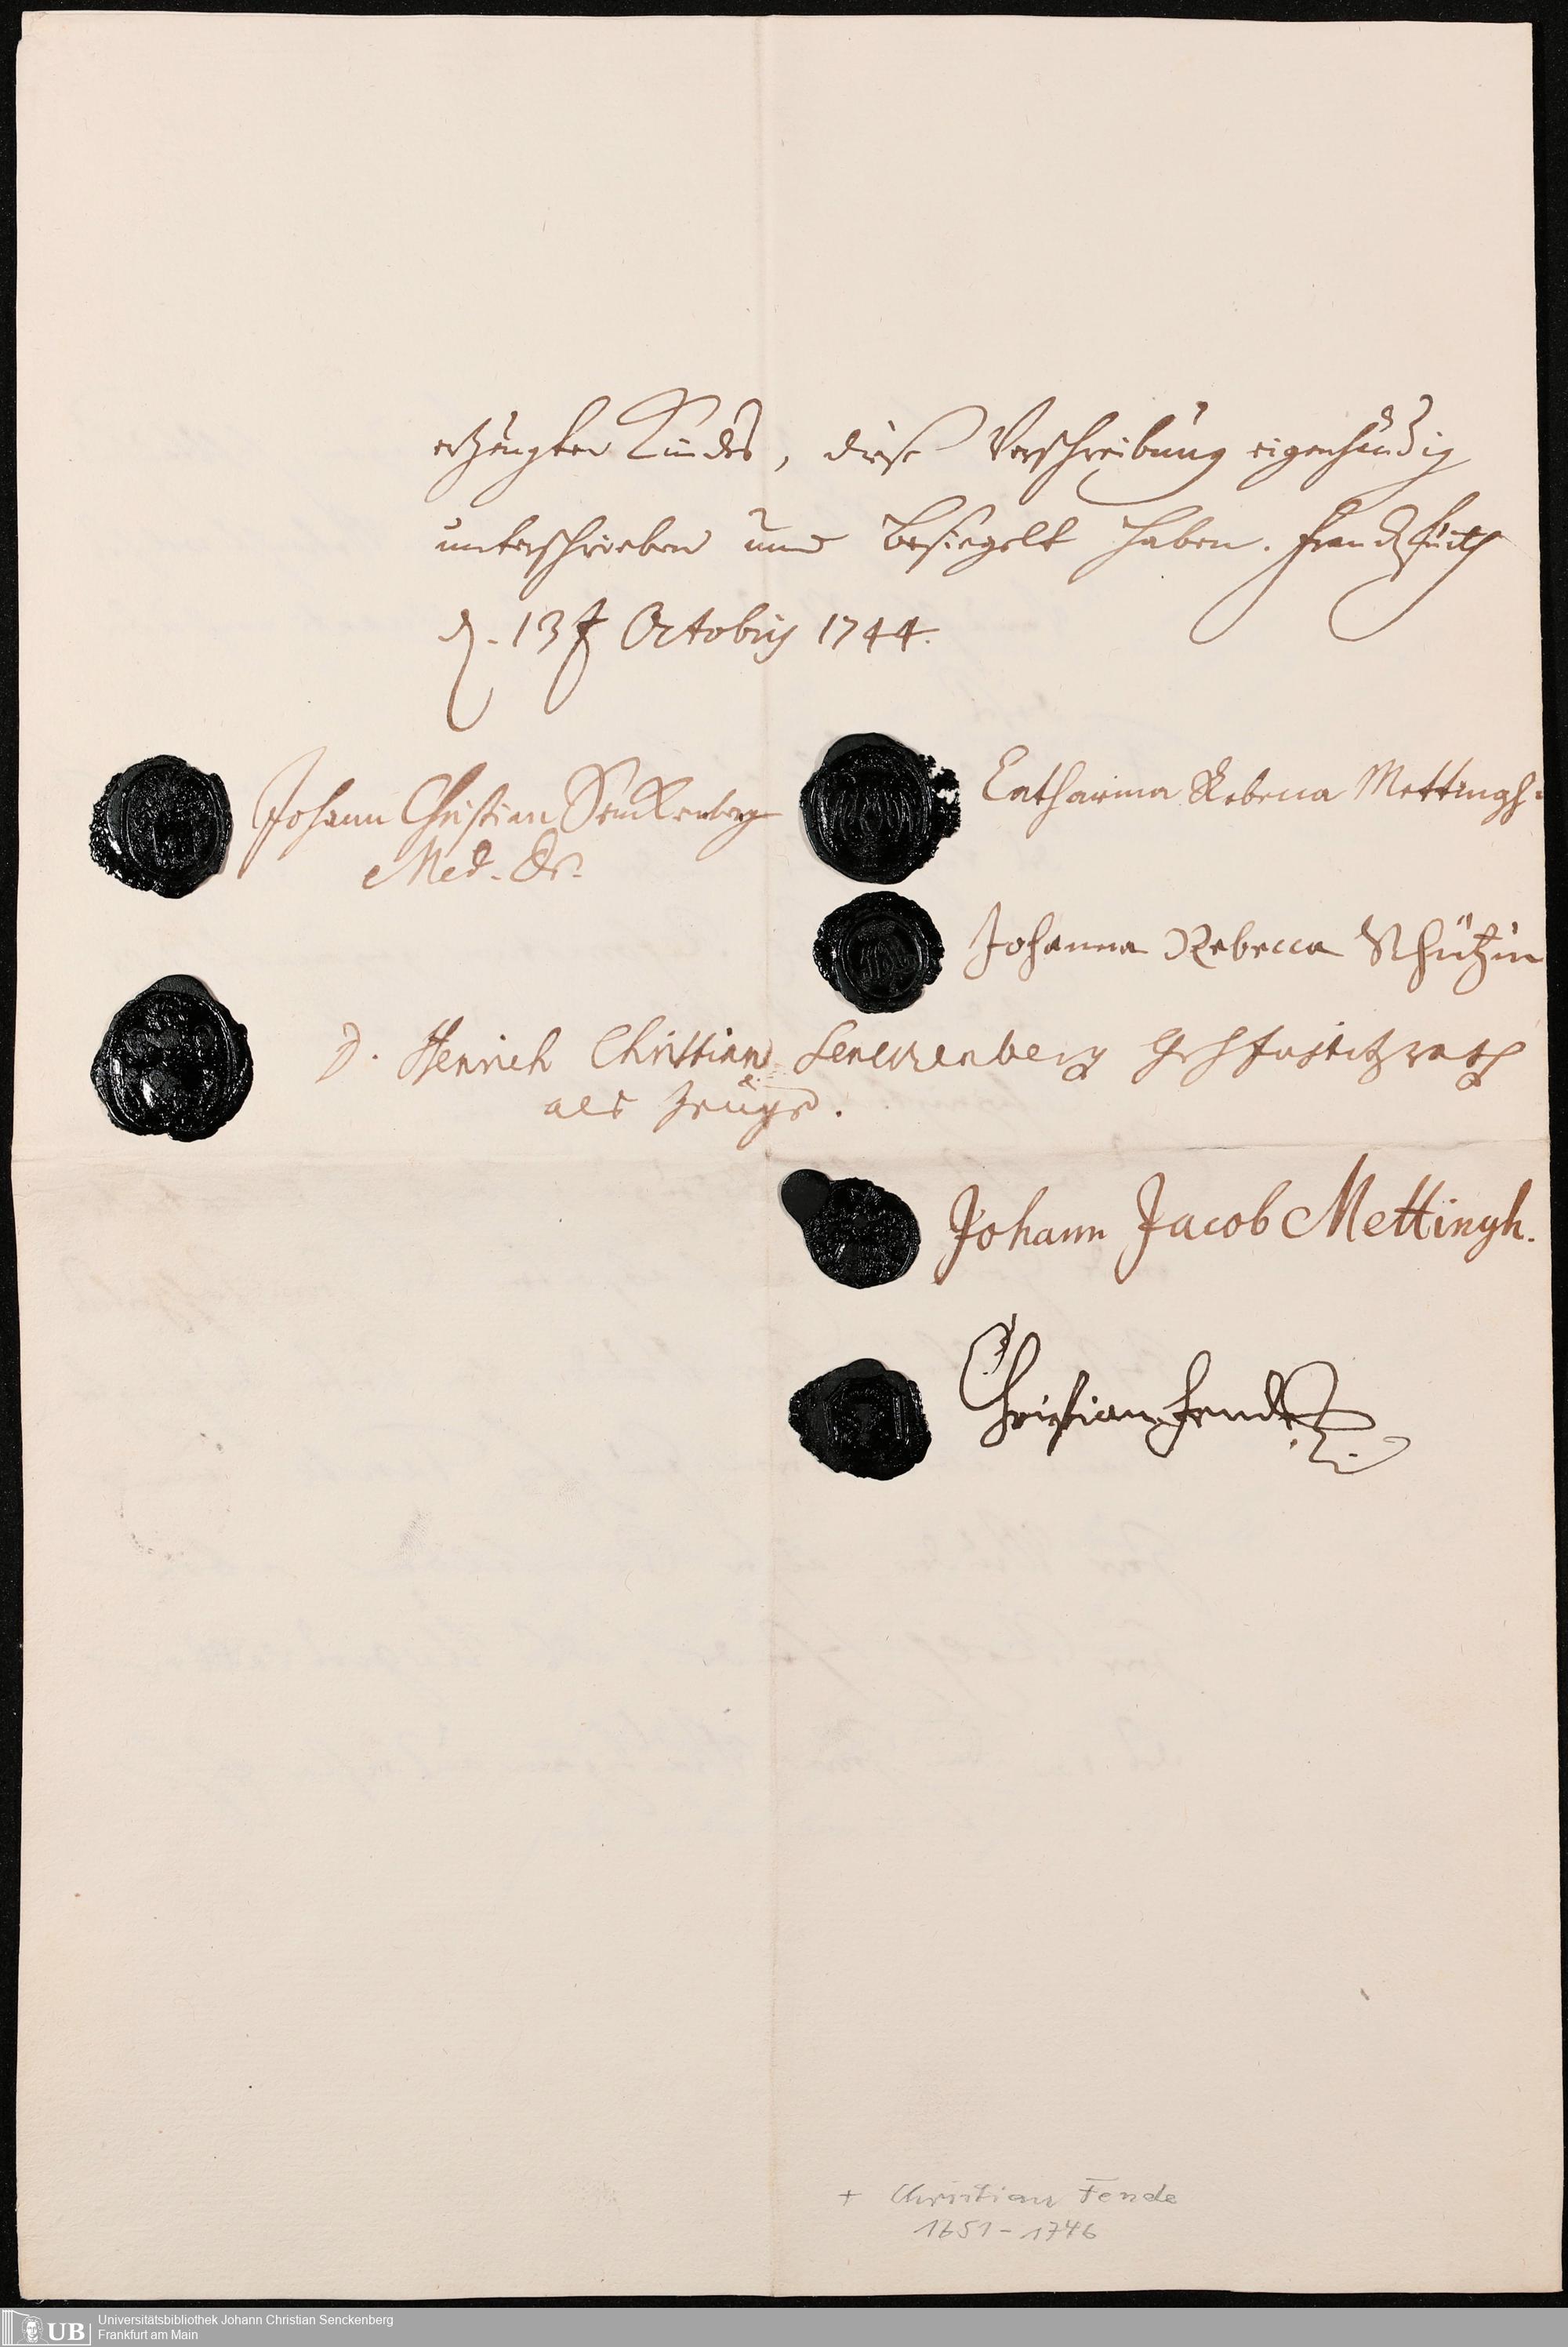 erzeugten Kindes, diese Verschreibung eigenhändig
unterschrieben und besiegelt haben. Franckfurth
d. 13 Octobris 1744.
Johann Christian Senckenberg
Med. Dr.
Catharina Rebecca Mettingh.
Johanna Rebecca Schützin
D. Henrich Christian Senckenberg Justitzrath
als Zeuge.
Johann Jacob Mettingh.
Christian Fende
+ Christian Fende
1651-1746
UB
Universitätsbibliothek Johann Christian Senckenberg
Frankfurt am Main